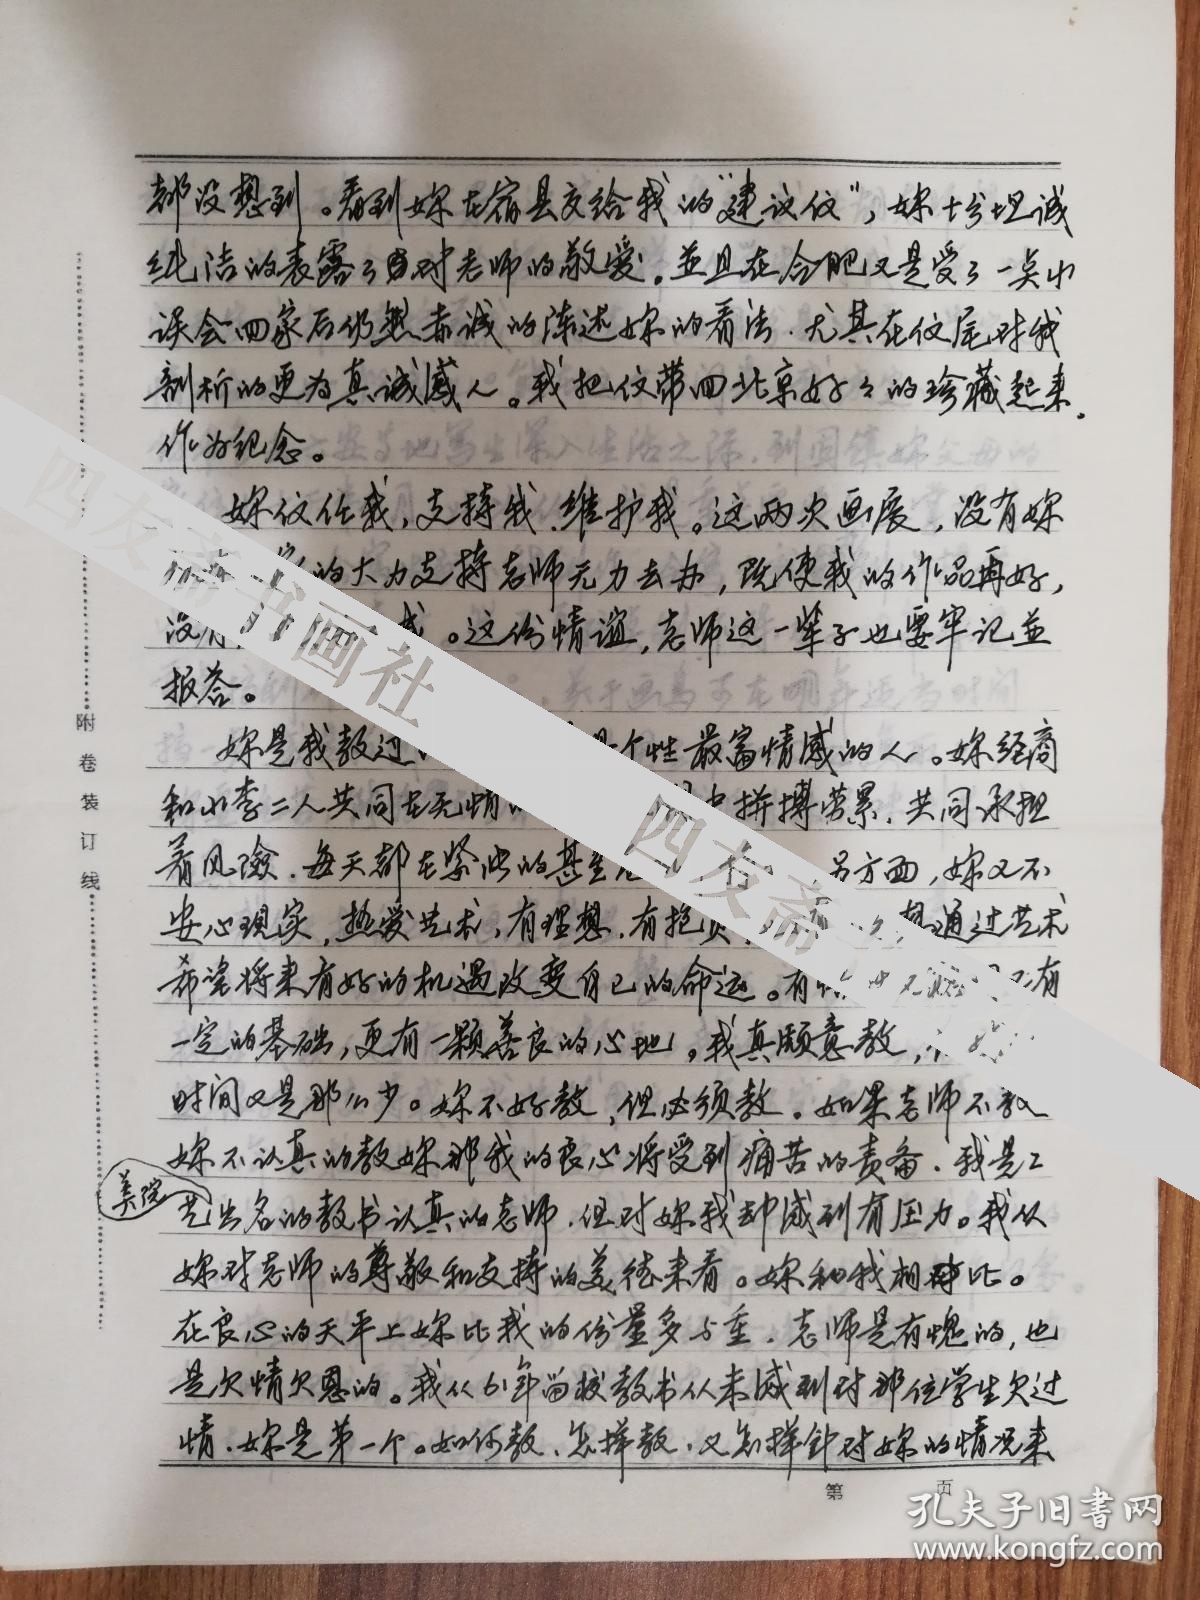 都没想到。看到妳在宿县交给我的"建议信"，妳十分坦诚
纯洁的表露了对老师的敬爱。並且在合肥又是受了一点小
误会回家后仍然赤诚的陈述妳的看法．尤其在信尾对我
剖析的更为真诚感人。我把信带回北京好々的珍藏起来．
作为纪念。
妳信任我，支持我、维护我。这两次画展，没有妳
的大力支持老师无力去办，既使我的作品再好，
没有 。这份情谊，老师这一辈子也要牢记並
报答。
妳是我教过 个性最富情感的人。妳经商
和小李二人共同在无情的 中拼搏劳累．共同承担
着风险．每天都在紧张的甚至 另方面，妳又不
安心现实，热爱艺术，有理想．有抱负 想通过艺术
希望将来有好的机遇改变自己的命运。有 有
一定的基础，更有一颗善良的心地。我真願意教，
时间又是那么少。妳不好教，但必须教．如果老师不教
妳不认真的教妳那我的良心将受到痛苦的责备．我是工
美院
艺出名的教书认真的老师．但对妳我却感到有压力。我从
妳对老师的尊敬和支持的美德来看。妳和我相比。
在良心的天平上妳比我的份量多与重．老师是有愧的，也
是欠情欠恩的。我从61年留校教书从未感到对那位学生欠过
情．妳是第一个。如何教、怎样教．又怎样针对妳的情况来
附卷装订线
第 页
四友斋书画社
四友斋
孔夫子旧书网
www.kongfz.com